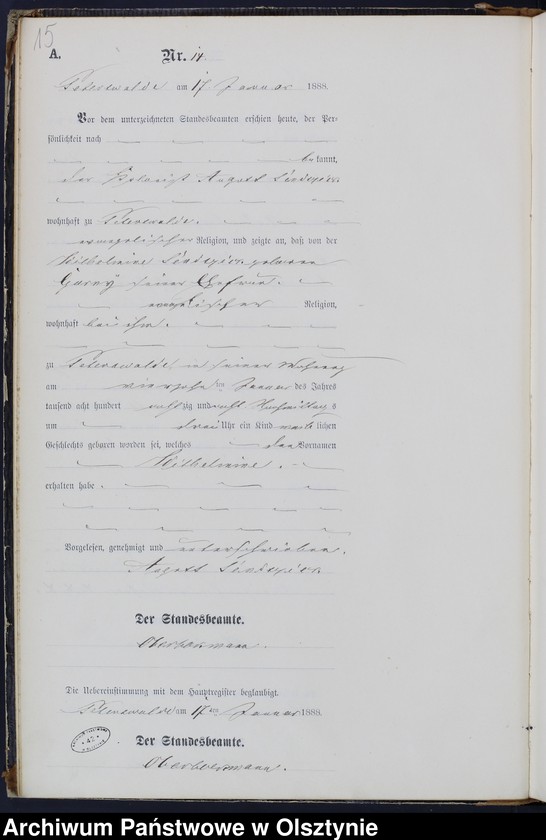 15
A. Nr. 14.
Peterswalde am 17 Januar 1888.
Vor dem unterzeichneten Standesbeamten erschien heute, der Per-
sönlichkeit nach
bekannt,
der August
wohnhaft zu Peterswalde.
evangelischer Religion, und zeigte an, daß von der
Wilhelmine geborene
seiner Ehefrau.
evangelischer Religion,
wohnhaft bei ihm.
zu Peterswalde in seiner Wohnung
am vierzehnten Januar des Jahres
tausend acht hundert achtzig und acht Nachmittags
um drei Uhr ein Kind weiblichen
Geschlechts geboren worden sei, welches den Vornamen
Wilhelmine.
erhalten habe.
Vorgelesen, genehmigt und unterschrieben.
August
Der Standesbeamte.
Die Uebereinstimmung mit dem Hauptregister beglaubigt.
Peterswalde am 17ten Januar 1888.
Der Standesbeamte.
Archiwum Państwowe w Olsztynie